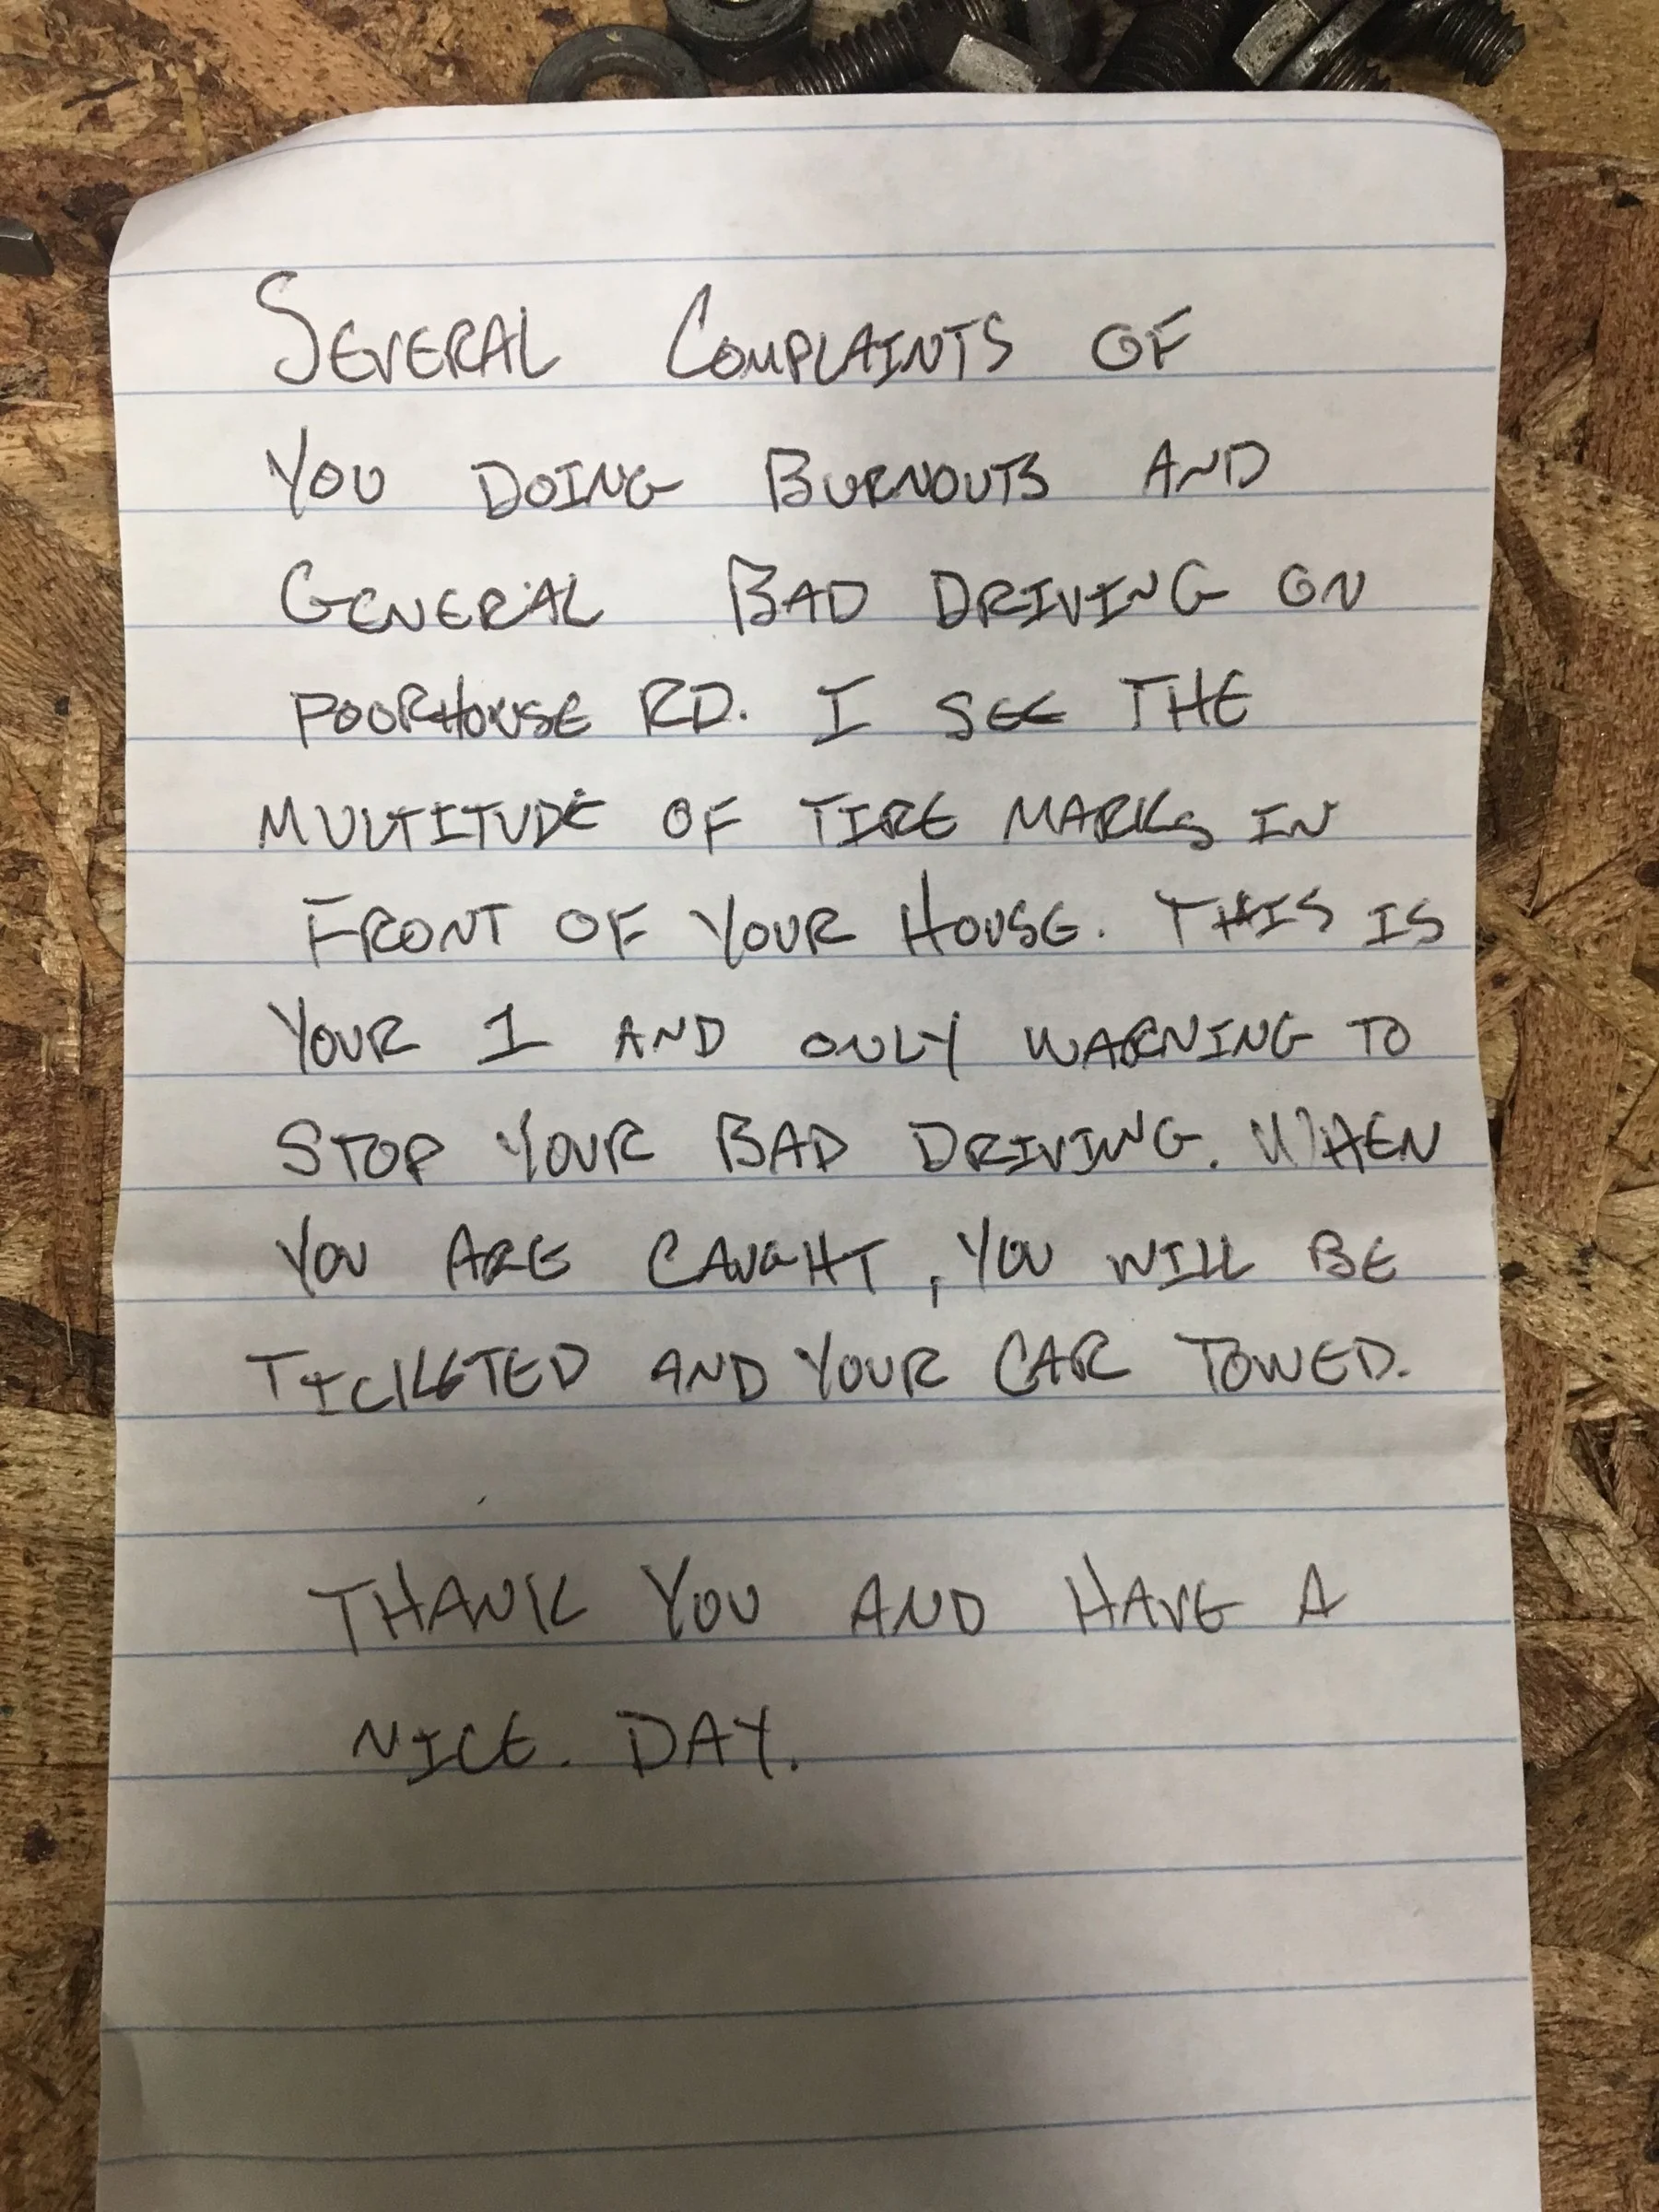 SEVERAL COMPLAINTS OF
YOU DOING BURNOUTS AND
GENERAL BAD DRIVING ON
POORHOUSE RD. I SEE THE
MULTITUDE OF TIRE MARKS IN
FRONT OF YOUR HOUSE. THIS IS
YOUR 1 AND ONLY WARNING TO
STOP YOUR BAD DRIVING. WHEN
YOU ARE CAUGHT, YOU WILL BE
TICKETED AND YOUR CAR TOWED.
THANK YOU AND HAVE A
NICE. DAY.